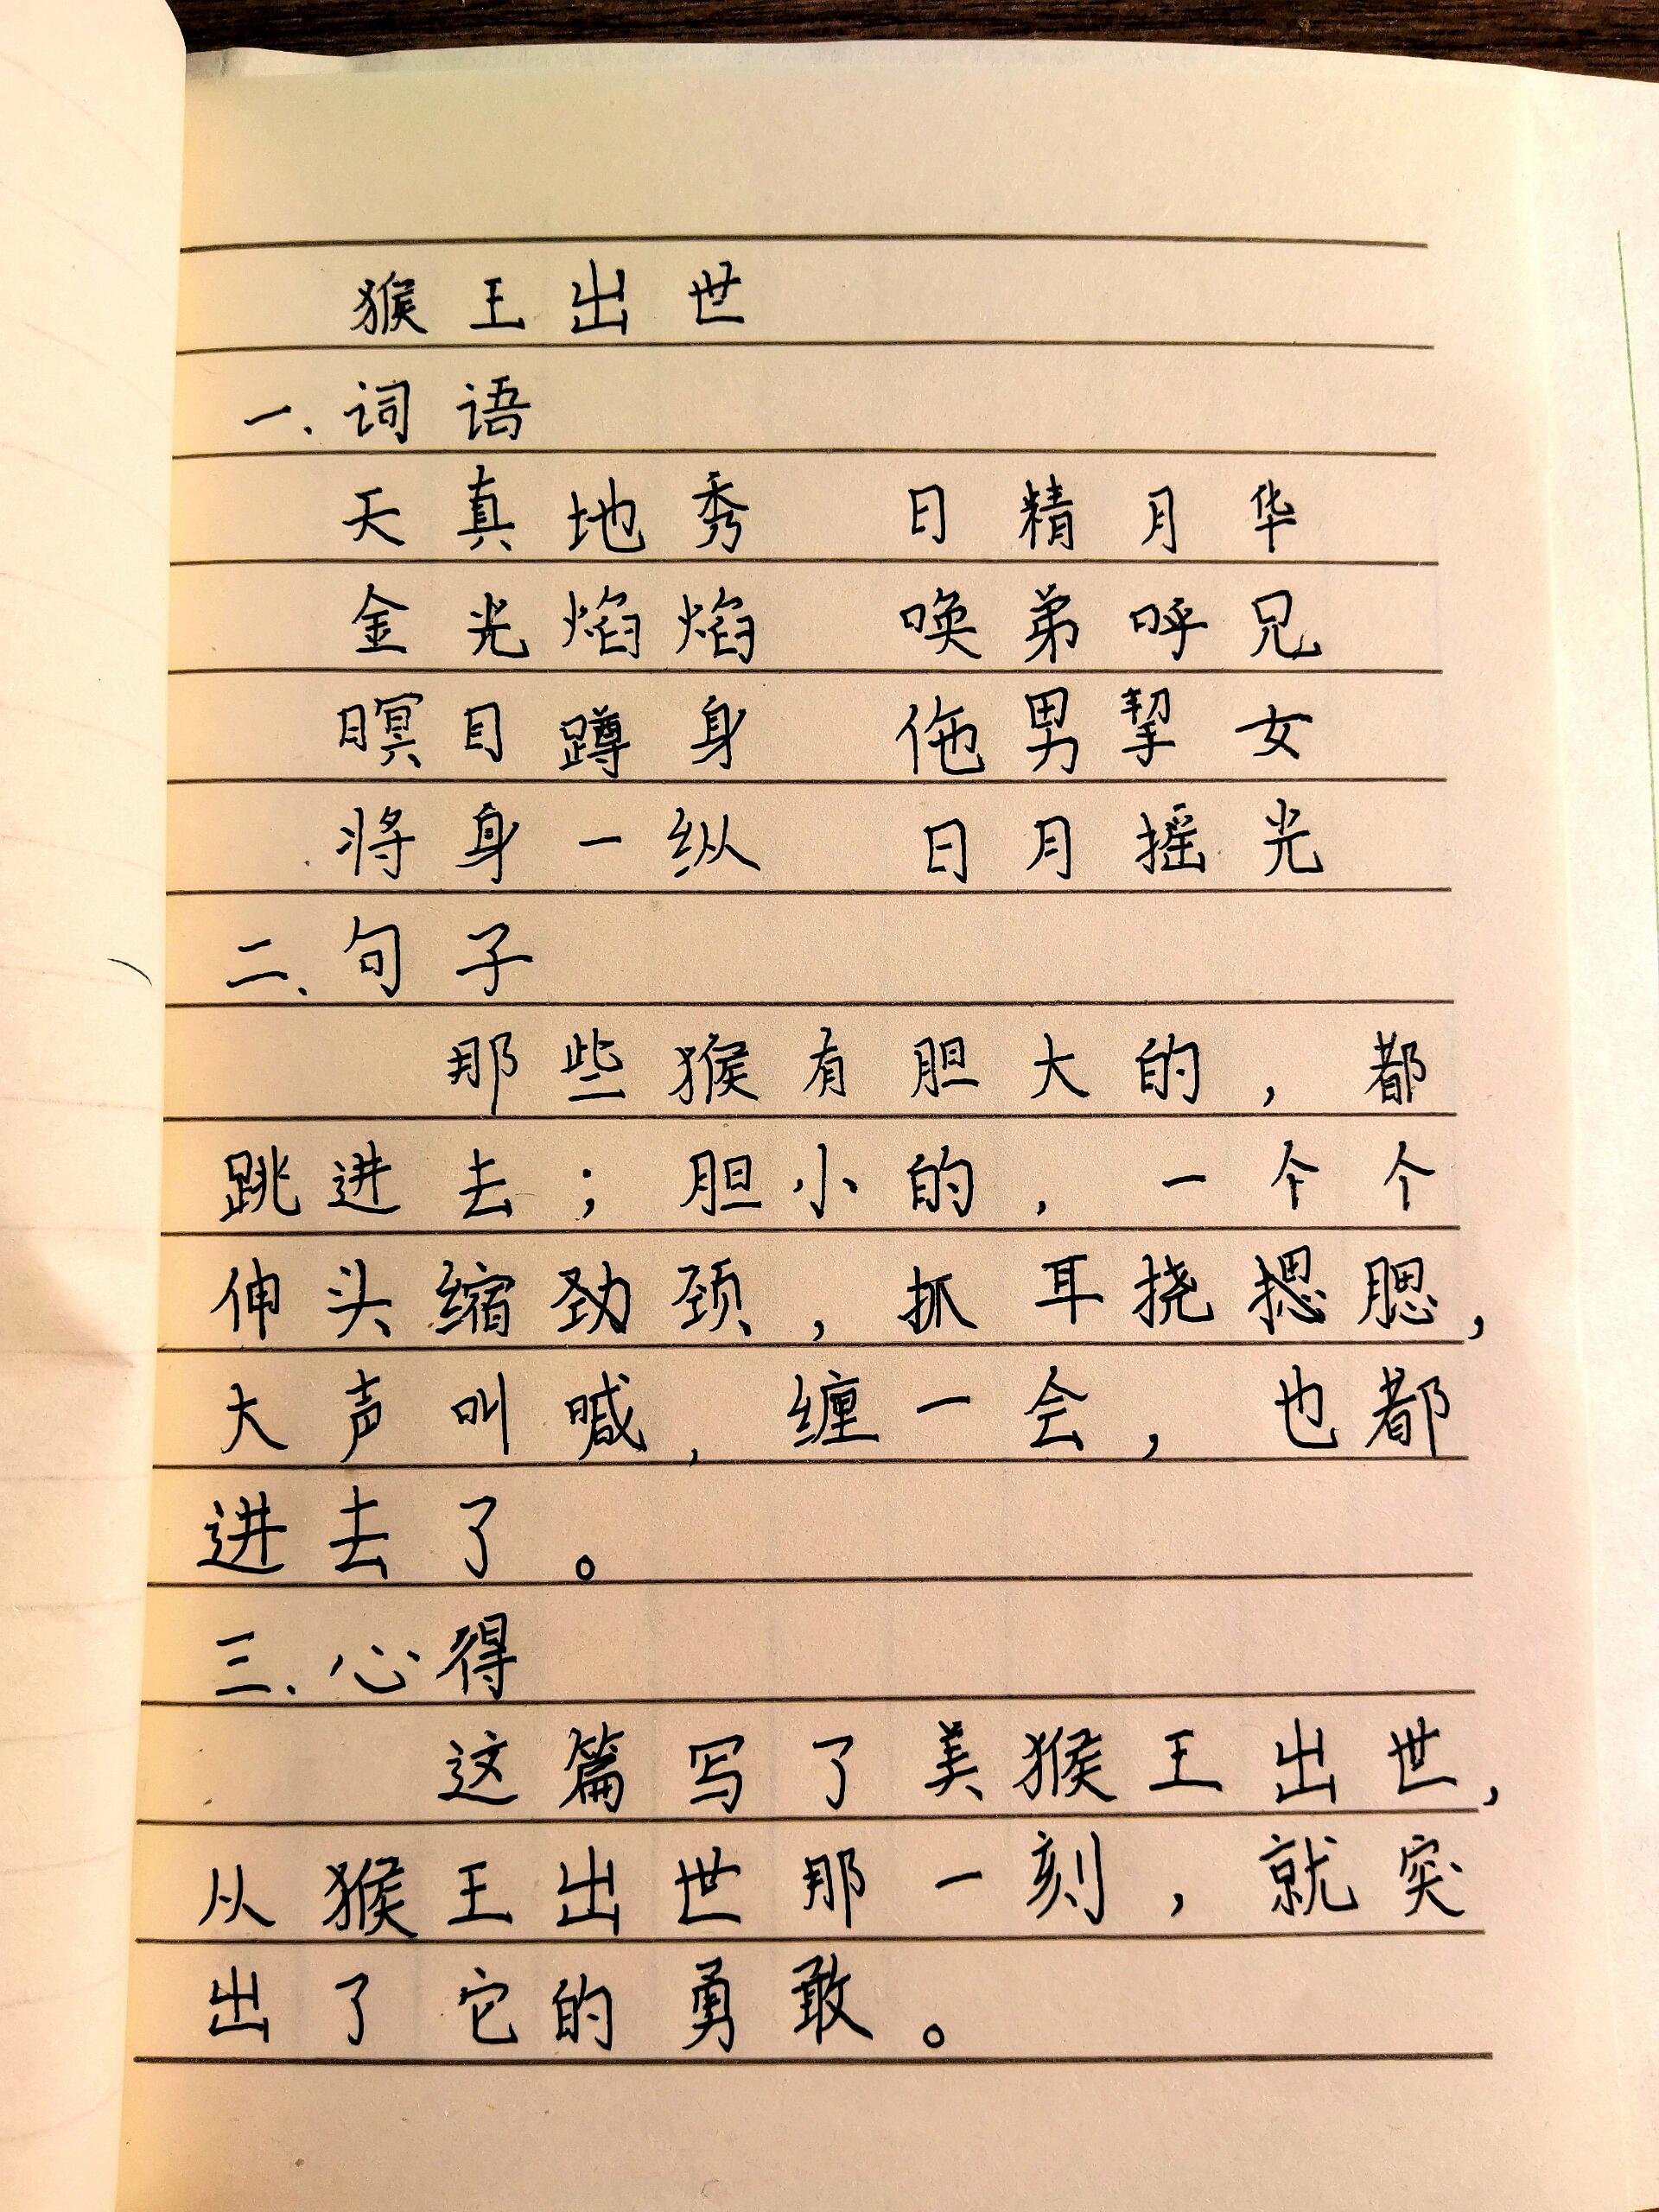 猴王出世
一.词语
天真地秀 日精月华
金光焰焰 唤弟呼兄
暝目蹲身 拖男挈女
将身一纵 日月摇光
二、句子
那些猴有胆大的，都
跳进去；胆小的，一个个
伸头缩劲颈，抓耳挠摁腮，
大声叫喊，缠一会，也都
进去了。
三.心得
这篇写了美猴王出世，
从猴王出世那一刻，就突
出了它的勇敢。